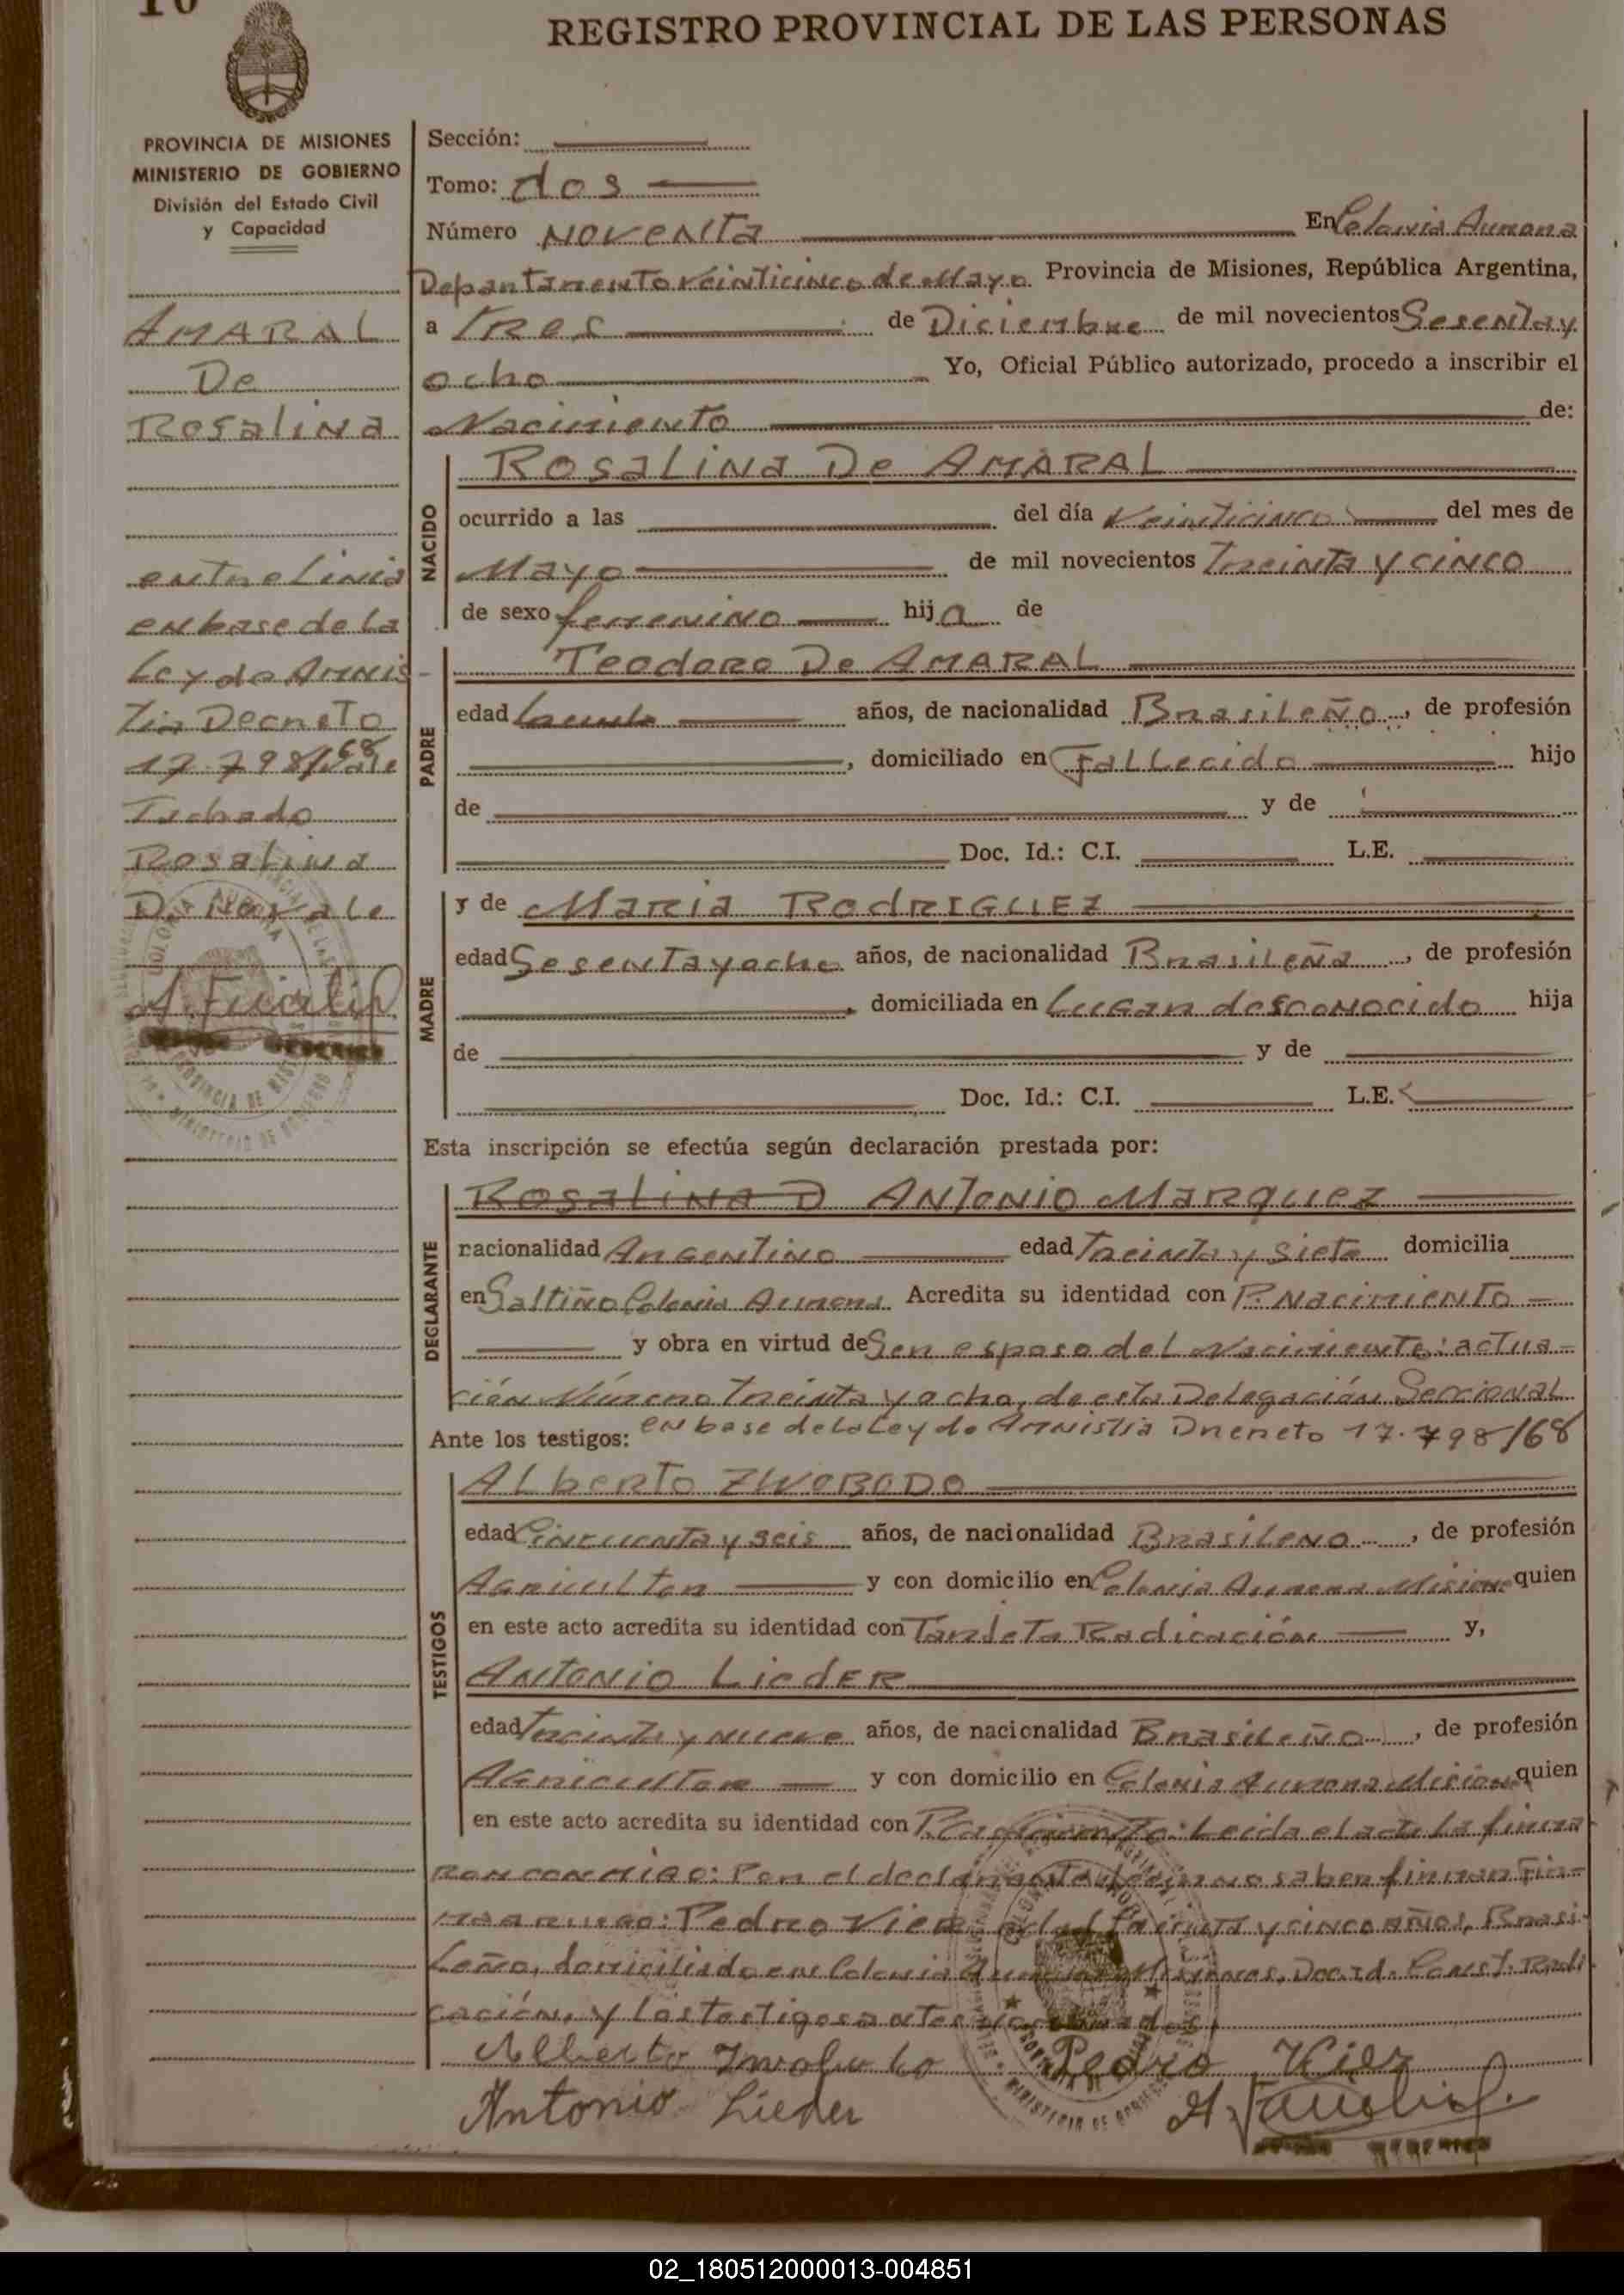 10
REGISTRO PROVINCIAL DE LAS PERSONAS
PROVINCIA DE MISIONES
MINISTERIO DE GOBIERNO
División del Estado Civil
y Capacidad
AMARAL
De
Rosalina
entre Linia
en base de la
Ley de Amnis-
tia Decreto
17.798/68 Vale
Tachado
Rosalina
D. No vale
Sección:
Tomo: dos
Número Noventa En Colonia Aurora
Departamento Veinticinco de Mayo Provincia de Misiones, República Argentina,
a Tres de Diciembre de mil novecientos Sesenta y
ocho Yo, Oficial Público autorizado, procedo a inscribir el
Nacimiento de:
NACIDO
Rosalina De AMARAL
ocurrido a las del día Veinticinco del mes de
Mayo de mil novecientos Treinta y cinco
de sexo femenino hija de
PADRE
Teodoro De AMARAL
edad años, de nacionalidad Brasileño, de profesión
, domiciliado en Fallecido hijo
de y de
Doc. Id.: C.I. L.E.
MADRE
y de Maria RodRIGUEZ
edad Sesenta y ocho años, de nacionalidad Brasileña, de profesión
, domiciliada en Lugar desconocido hija
de y de
Doc. Id.: C.I. L.E.
Esta inscripción se efectúa según declaración prestada por:
DECLARANTE
Rosalina D ANTONIO MARQUEZ
nacionalidad Argentino edad Treinta y siete domicilia
en Saltiño Colonia Aurora Acredita su identidad con P. Nacimiento
y obra en virtud de Ser esposo del Nacimiento: actua-
ción Número treinta y ocho, de esta Delegación Seccional
en base de la Ley de Amnistia Dnecreto 17.798/68
Ante los testigos:
TESTIGOS
ALberto ZWOBODO
edad Cincuenta y seis años, de nacionalidad Brasileno, de profesión
Agricultor y con domicilio en Colonia Aurora Misione quien
en este acto acredita su identidad con Tarjeta Radicación y,
Antonio LiedER
edad Treinta y nueve años, de nacionalidad Brasileño, de profesión
Agricultor y con domicilio en Colonia Aurora Mision quien
en este acto acredita su identidad con Leida el acta la firma
ron conmigo: Por el declarante no saber firmar Fir-
ma a ruego: Pedro Vier edad treinta y cinco años, Brasi-
Leño, domiciliado en Colonia Aurora Misiones, Doc. Id. Const. Radi
cación, y los testigos antes
Alberto Pedro Vier
Antonio Lieder
02_180512000013-004851